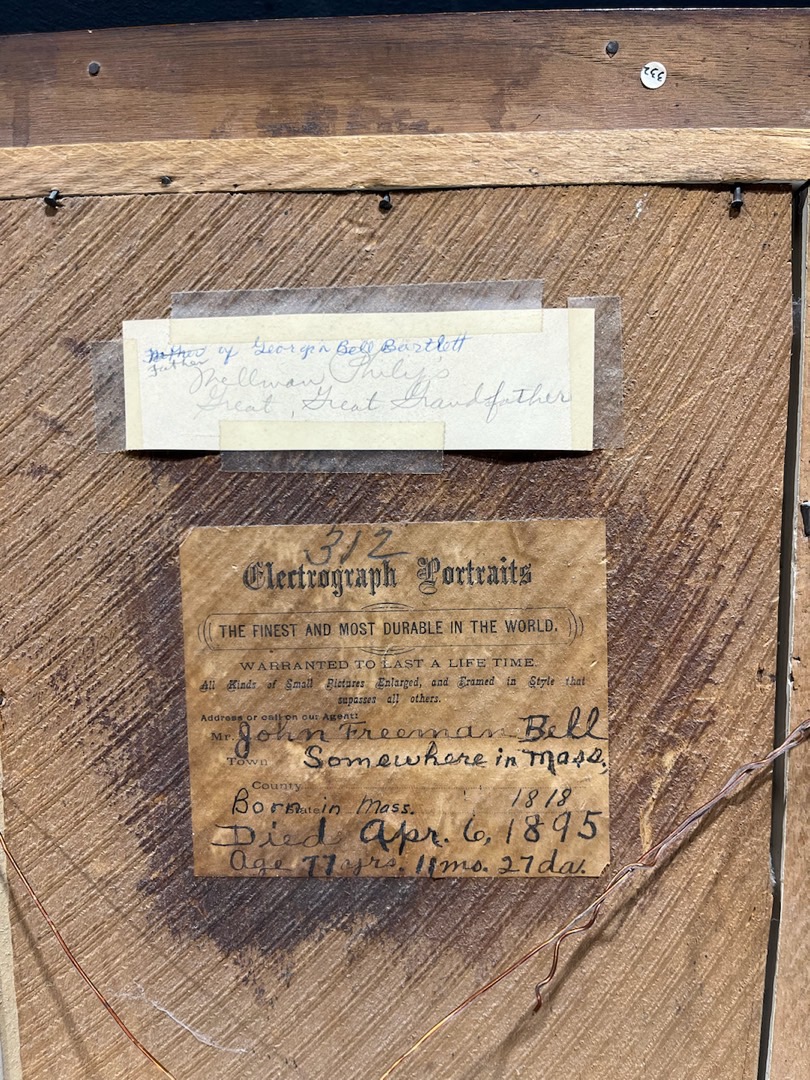 332
Mother of Georgia Bell Bartlett
Father
Mellman Philips
Great, Great Grandfather
312
Electrograph Portraits
THE FINEST AND MOST DURABLE IN THE WORLD.
WARRANTED TO LAST A LIFE TIME.
All Kinds of Small Pictures Enlarged, and Framed in Style that
supasses all others.
Address or call on our Agent:
Mr. John Freeman Bell
Town Somewhere in Mass,
County
Born State in Mass. 1818
Died Apr. 6, 1895
Age 77 yrs. 11 mo. 27 da.